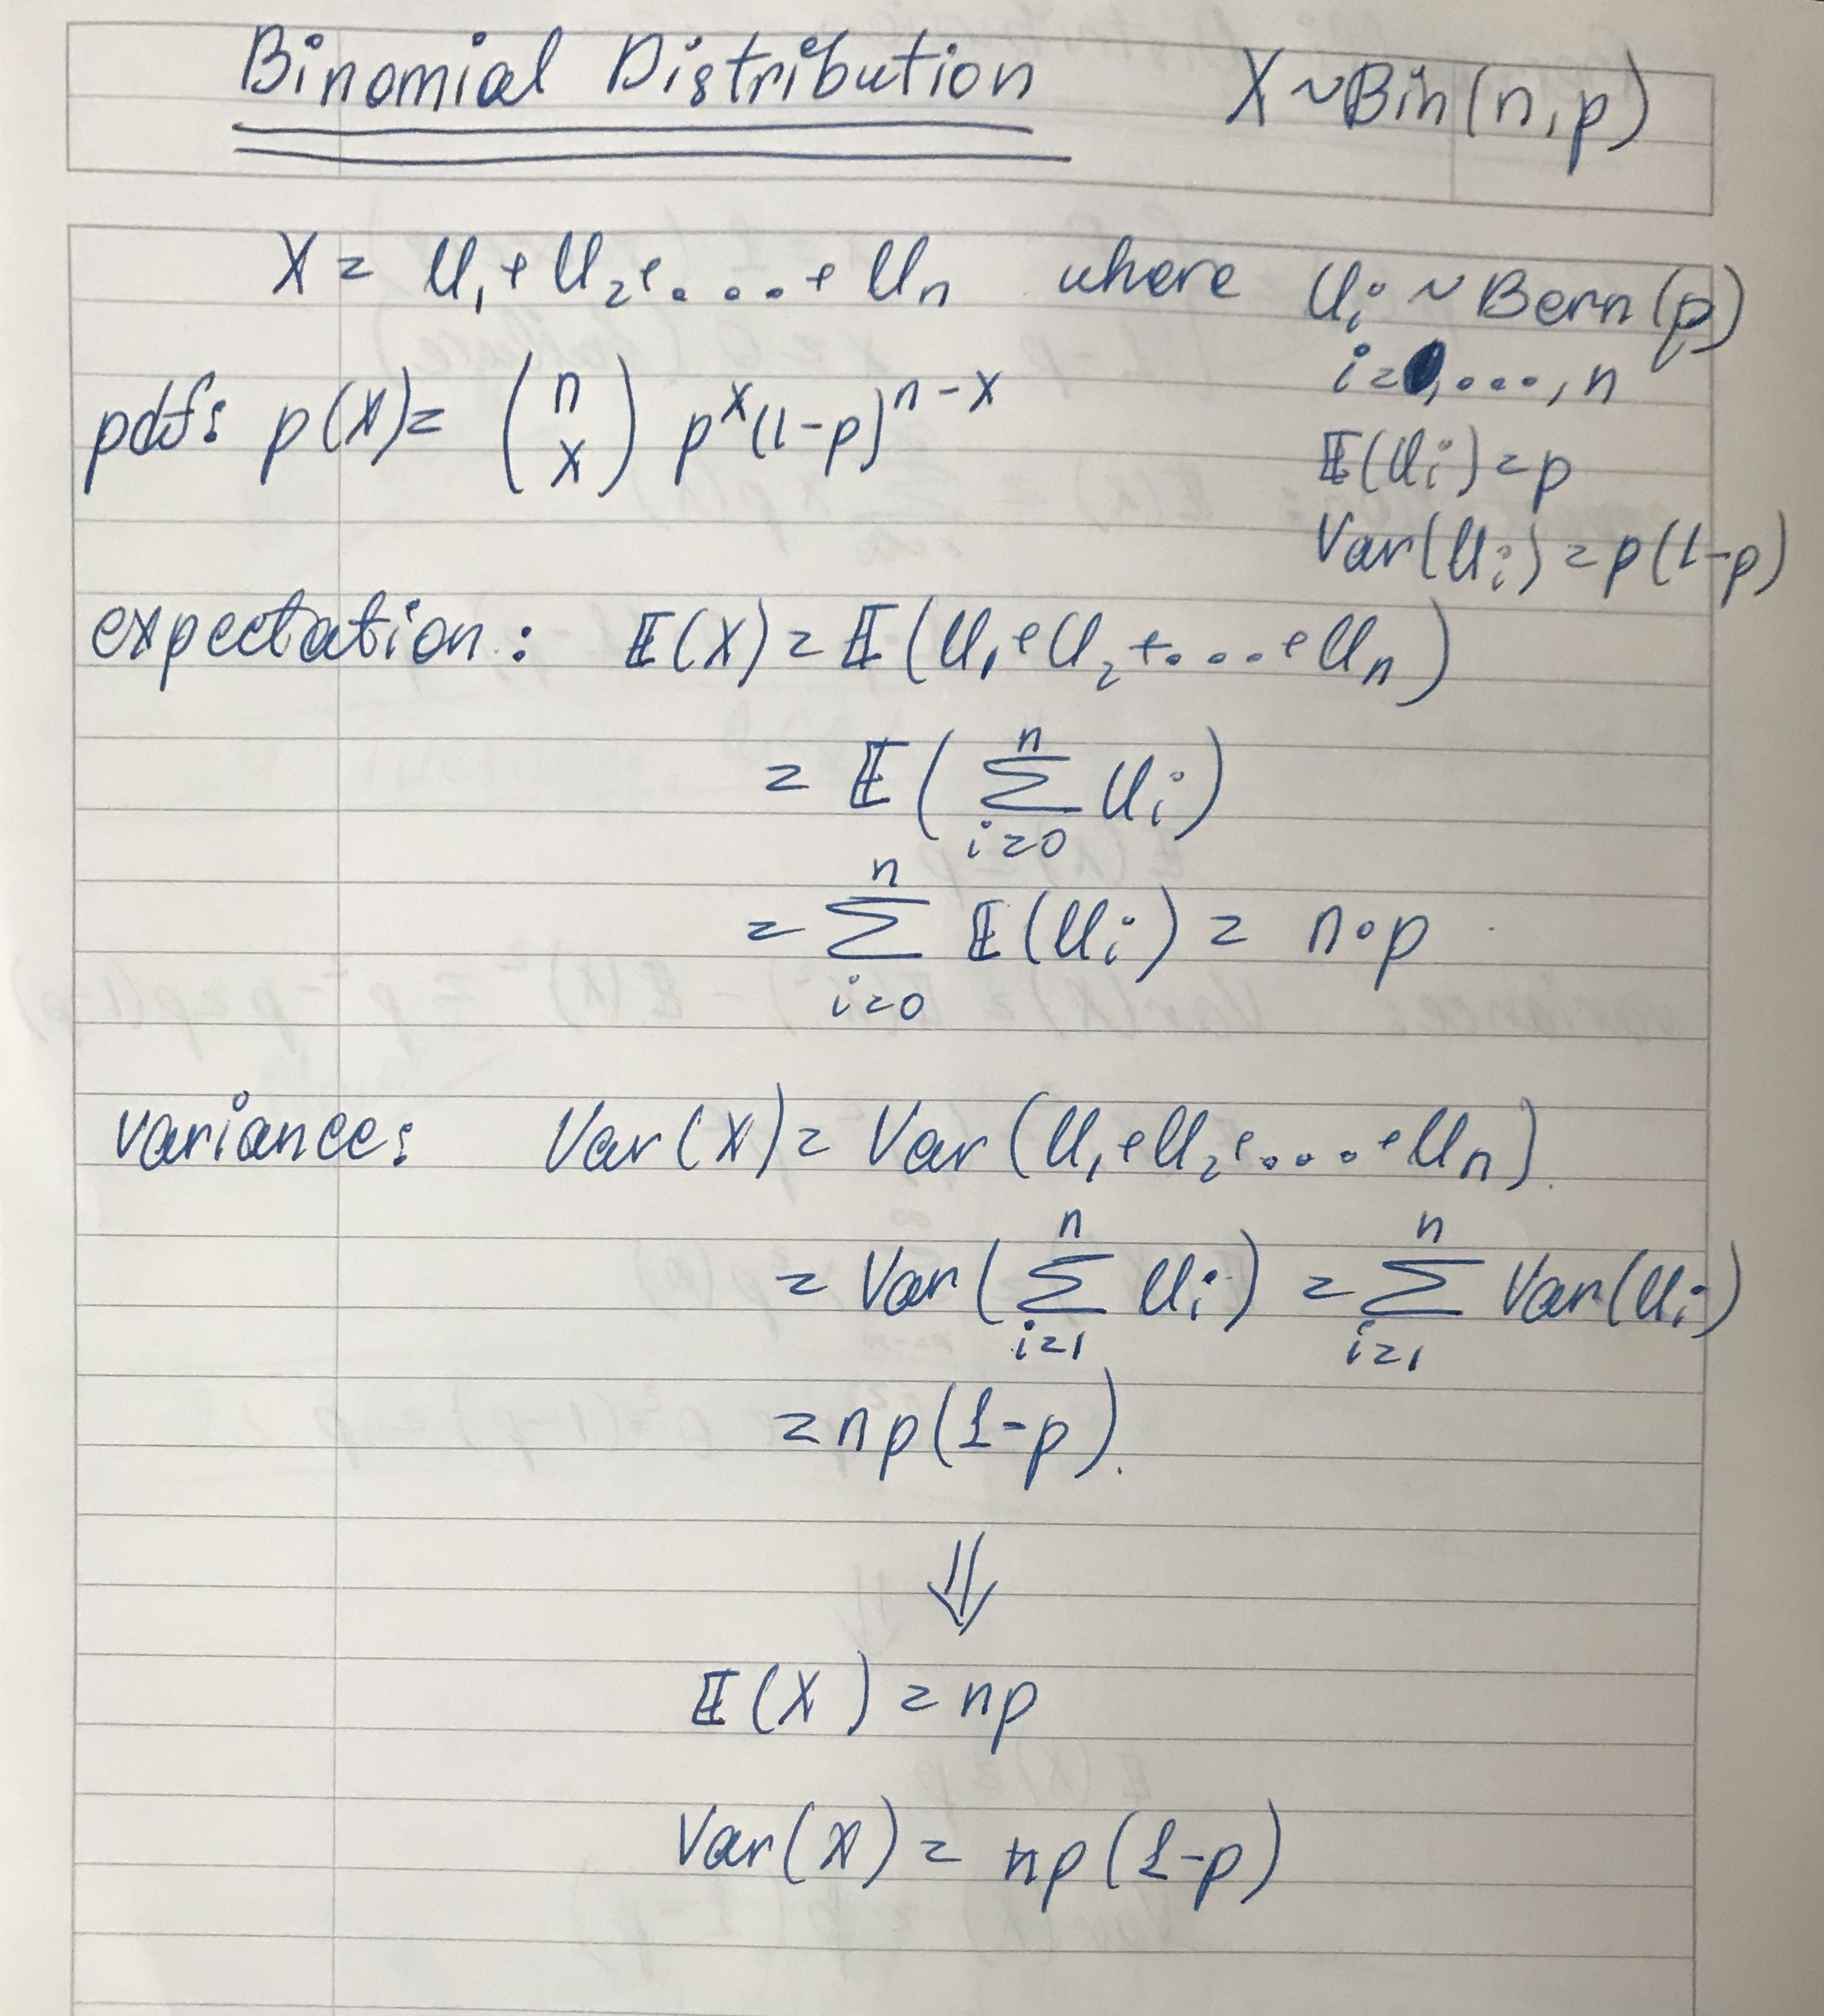 Binomial Distribution X ~ Bin(n,p)
X = U₁ + U₂ + .... + Uₙ where Uᵢ ~ Bern(p)
i = , ..., n
pdf: p(X) = (n x) p^x (1-p)^(n-x)
𝔼(Uᵢ) = p
Var(Uᵢ) = p(1-p)
expectation: 𝔼(X) = 𝔼(U₁ + U₂ + .... + Uₙ)
= 𝔼(∑_{i=0}^{n} Uᵢ)
= ∑_{i=0}^{n} 𝔼(Uᵢ) = n·p
variance: Var(X) = Var(U₁ + U₂ + .... + Uₙ).
= Var(∑_{i=1}^{n} Uᵢ) = ∑_{i=1}^{n} Var(Uᵢ)
= np(1-p).
⇓
𝔼(X) = np
Var(X) = np(1-p)